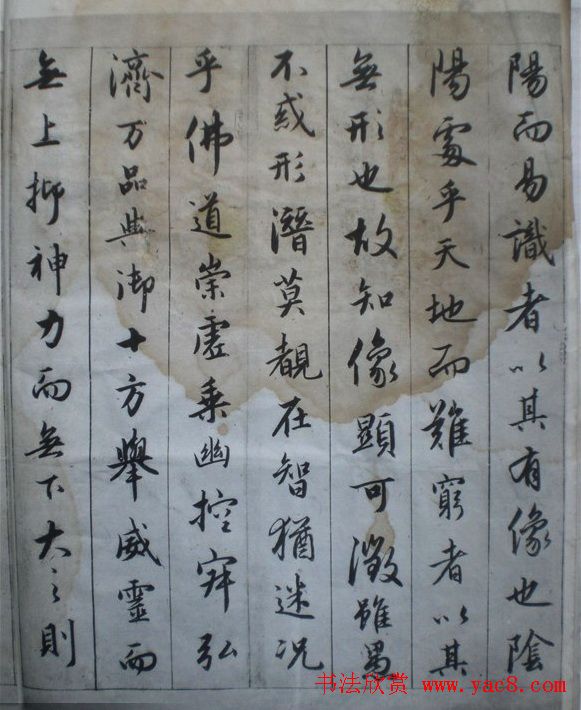 陽而易識者以其有像也陰
陽處乎天地而難窮者以其
無形也故知像顯可徵雖愚
不惑形潛莫覩在智猶迷况
乎佛道崇虛乘幽控寂弘
濟万品典御十方舉威靈而
無上抑神力而無下大之則
书法欣赏 www.yac8.com